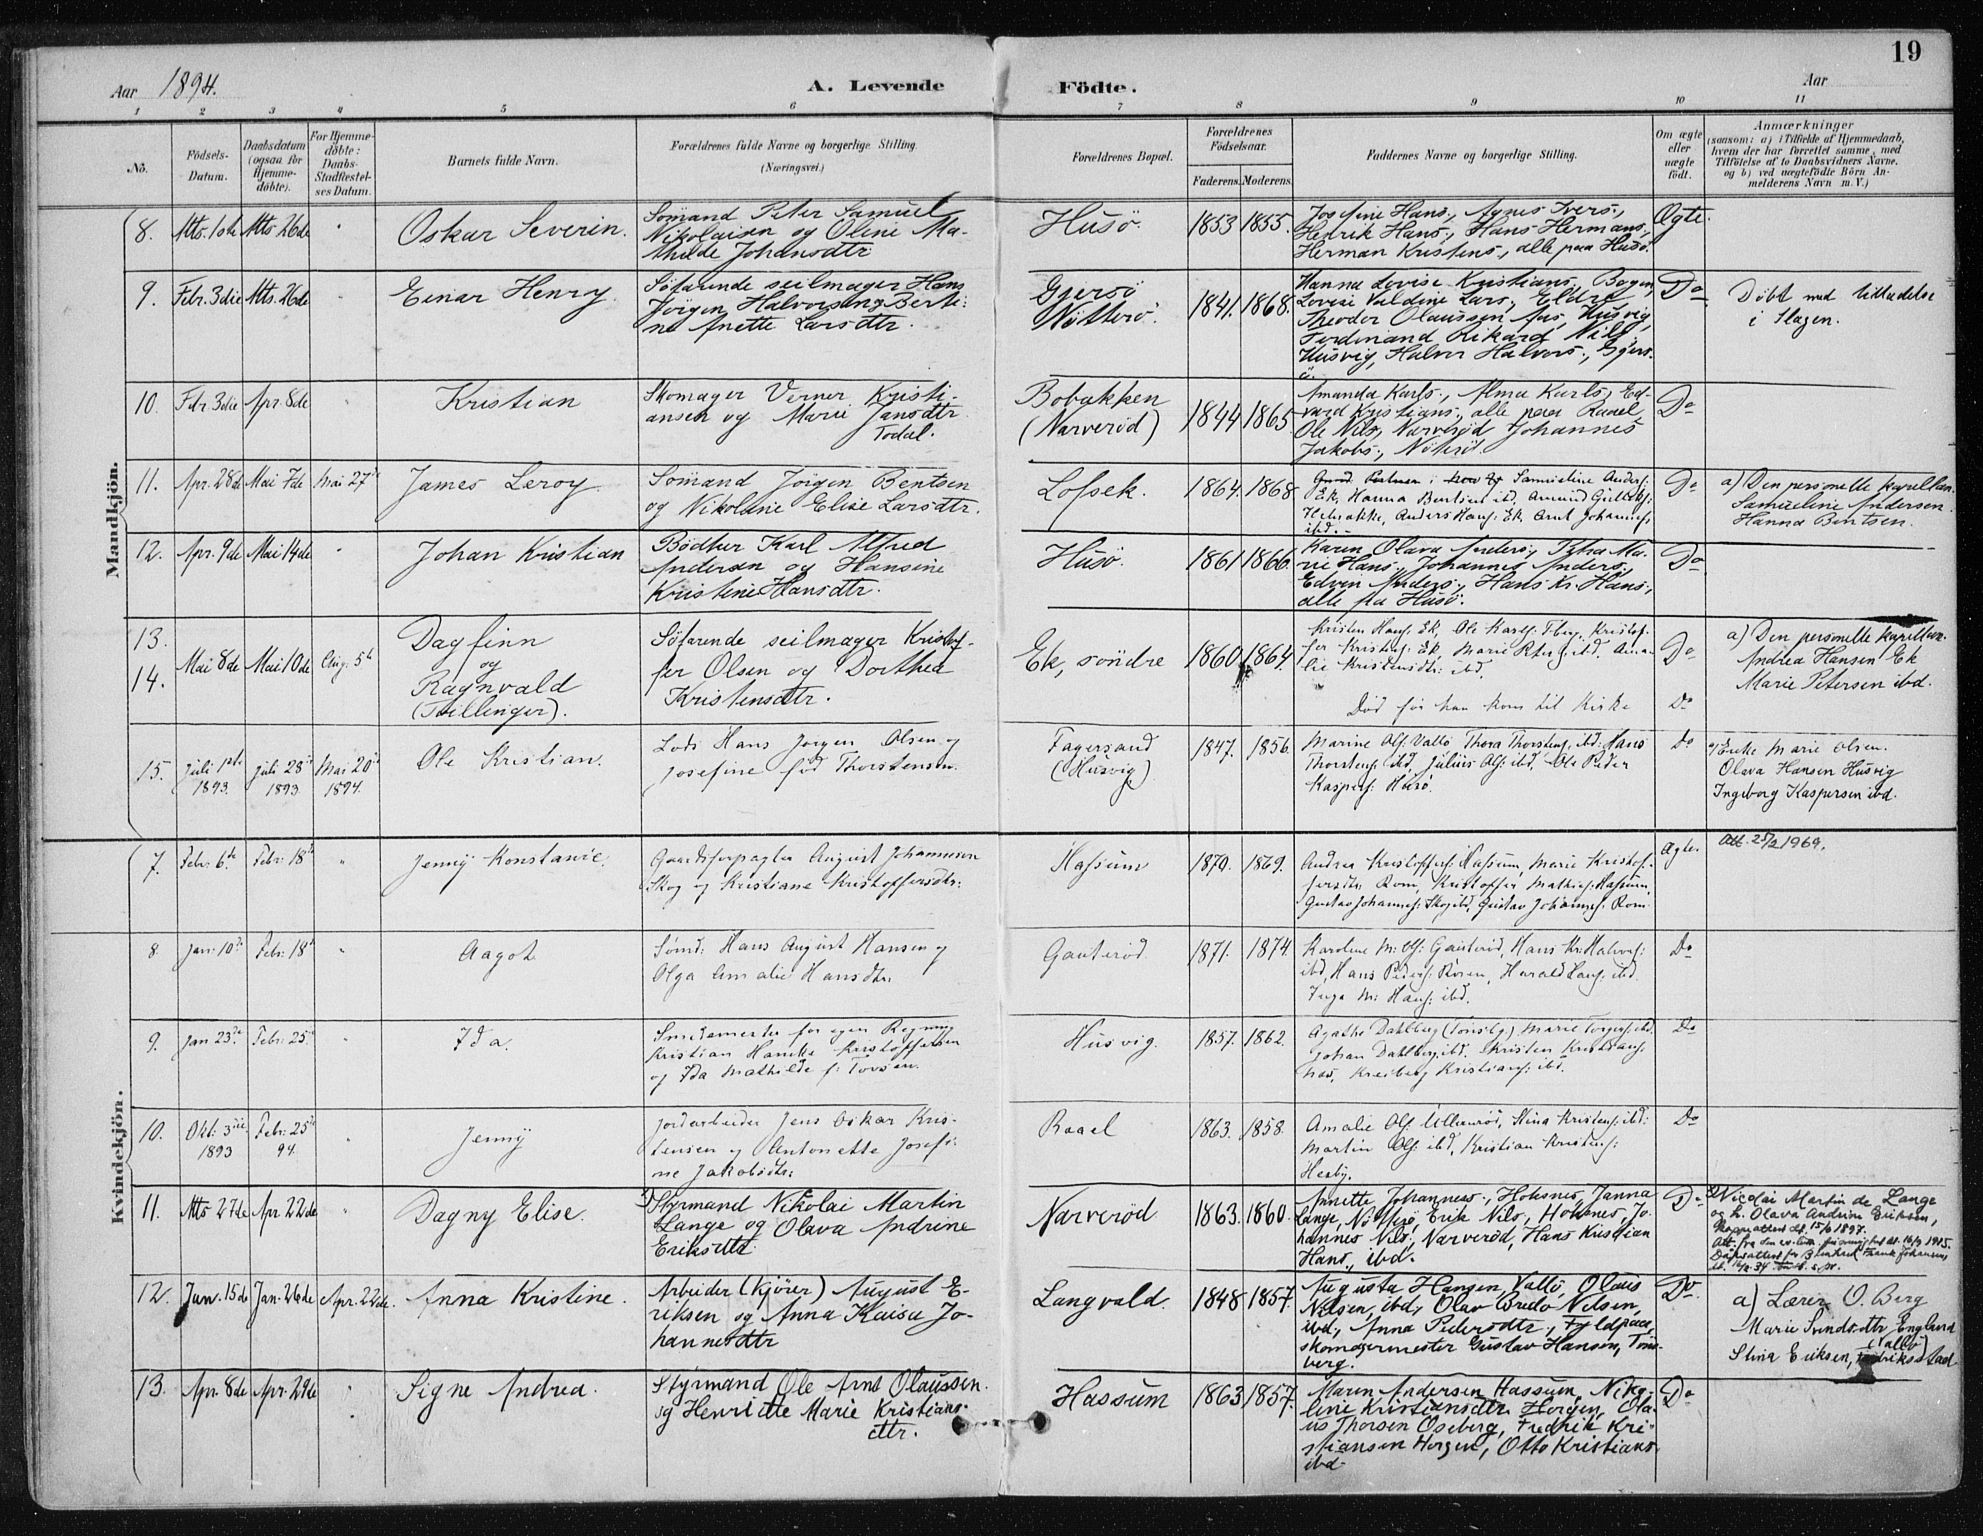 19
Aar 1894.
A. Levende Födte.
Aar
1 2 3 4 5 6 7 8 9 10 11
No.
Födsels-Datum.
Daabsdatum (ogsaa for Hjemmedöbte).
For Hjemmedöbte: Daabs-Stadfestelses Datum.
Barnets fulde Navn.
Forældrenes fulde Navne og borgerlige Stilling.
(Næringsvei.)
Forældrenes Bopæl.
Forældrenes Födselsaar.
Faderens. Moderens.
Faddernes Navne og borgerlige Stilling.
Om ægte eller uægte födt.
Anmærkninger
(saasom: a) i Tilfælde af Hjemmedaab, hvem der har forrettet samme, med Tilföielse af to Daabsvidners Navne. og b) ved uægtefödte Börn Anmelderens Navn m. V.)
Mandkjön.
8. Mts. 1ste Mts. 26de " Oskar Severin.
Sömand Peter Samuel
Nikolaisen og Oline Ma-
thilde Johansdtr
Husö. 1853 1855.
Josefine Hans., Agnes Ivers.,
Henrik Hans., Hans Hermans.,
Herman Kristens., alle paa Husö.
Ægte.
9. Febr. 3die Mts. 26de " Einar Henry.
Söfarende seilmager Hans
Jörgen Halvorsen og Berti-
ne Anette Larsdtr.
Gjersö
Nötterö. 1841. 1868.
Hanna Lovise Kristians., Bogen,
Lovise Valdine Lars.,
Theodor Olaussen Aas, Husvig,
Ferdinand Rikard Nils.,
Husvig, Halvor Halvors., Gjers-
ö.
Do
Döbt med tilladelse
i Slagen.
10. Febr. 3die Apr. 8de " Kristian
Skomager Verner Kristi-
ansen og Marie Jansdtr
Todal.
Bobakken
(Narveröd) 1844 1865
Amanda Karls., Alma Karls., Ed-
vard Kristians., alle paa Raael,
Ole Nils., Narveröd Johannes
Jakobs.,
Do
11. Apr. 28de Mai 7de Mai 27de James Leroy.
Sömand Jörgen Bentsen
og Nikoline Elise Larsdtr.
Lofsek. 1864. 1868.
Samueline Anders:
Ek, Hanna Bentsen ibd, Amund
Anders Hans: Ek, Arnt Johannes:
ibd.
Do
a) Den personelle kapellan.
Samueline Andersen.
Hanna Bentsen.
12. Apr. 9de Mai 14de " Johan Kristian
Bödker Karl Alfred
Andersen og Hansine
Kristine Hansdtr.
Husö. 1861 1866.
Karen Olava Anders.,
Hans., Johannes Anders.,
Edvin Anders., Hans Kr. Hans.,
alle paa Husö.
Do
13.
14. Mai 8de Mai 10de Aug: 5te
Dagfinn
og
Ragnvald
(Tvillinger).
Söfarende seilmager Kristof-
fer Olsen og Dorthea
Kristensdtr.
Ek, söndre 1860. 1864.
Kristen Hans: Ek, Ole Karls: Tbrg, Kristof-
fer Kristens: Ek, Marie Peters: ibd. Ama-
lie Kristensdtr: ibd.
Död för han kom til Kirke
Do
Do
a) Den personelle kapellan.
Andrea Hansen Ek
Marie Petersen ibd.
15. Juli 1ste 1893. Juli 28de 1893 Mai 20de 1894. Ole Kristian.
Lods Hans Jörgen Olsen og
Josefine föd Thorstensen.
Fagersand
(Husvig) 1847. 1856.
Marine Ols: Vallö Thora Thorstens: ibd: Hans
Thorstens: ibd, Julius Ols: ibd, Ole Peder
Kaspers: Husö.
Do
a) Enke Marie Olsen.
Olava Hansen Husvig
Ingeborg Kaspersen ibd.
Kvindekjön.
7. Febr: 6te Febr: 18de " Jenny Konstance.
Gaardsforpagter August Johannesen
Skog og Kristiane Kristoffersdtr:
Hassum 1870. 1869.
Andrea Kristoffers: Hassum, Marie Kristof-
fersdtr Rom, Kristoffer Mathias: Hassum,
Gustav Johannes: Skog ibd, Gustav Johannes: Rom.
Ægte.
Att. 25/2 1969.
8. Jan: 10de Febr: 18de " Aagot
Sömd: Hans August Hansen og
Olga Amalie Hansdtr:
Gauteröd. 1871. 1874.
Karoline M: Ols: Gauteröd, Hans Kr: Halvors:
ibd, Hans Peders: Rören, Harald Hans: ibd.
Inga M: Hans: ibd.
Do
9. Jan 23de Febr: 25de " Ida.
Smedemester for egen Regning
Kristian Hancke Kristoffersen
og Ida Mathilde f:
Husvig. 1857. 1862.
Agathe Dahlberg (Tönsbg.) Marie Torgers: ibd.
Johan Dahlberg ibd. Kristen Kristians:
Næs, Kristians: ibd.
Do
10. Okt: 3die 1893 Febr: 25de 94. " Jenny
Jordarbeider Jens Oskar Kris-
tensen og Antonette Josefi-
ne Jakobsdtr:
Raael 1863. 1858.
Amalie Ols: Ulleneröd, Stina Kristens: ibd:
Martin Ols: ibd, Kristian Kristens:
Hesby.
Do
11. Mts 27de Apr 22de " Dagny Elise.
Styrmand Nikolai Martin
Lange og Olava Andrine
Eriksdtr.
Narveröd 1863. 1860.
Annette Johannes., Holsnes, Janna
Lange, Nötterö, Erik Nils., Holsnes, Jo-
hannes Nils., Narveröd, Hans Kristian
Hans., ibd.
Do
Nicolai Martin de Lange
og h. Olava Andrine Eriksen,
12. Jan. 15de Jan. 26de Apr. 22de. Anna Kristine.
Arbeider (kjörer) August E-
riksen og Anna Kaisa Jo-
hannesdtr
Langvald. 1848 1857.
Augusta Hansen, Vallö, Olaus
Nilsen, ibd, Olav Bredo Nilsen,
ibd., Anna Pedersdtr.,
skomagermester Gustav Hansen, Töns-
berg.
Do
a) Lærer O. Berg
Marie Svendsdtr England
(Vallö)
Stina Eriksen, Fredriksstad
13. Apr. 8de Apr. 29de " Signe Andrea.
Styrmand Ole Arnt Olaussen.
og Henriette Marie Kristians-
dtr.
Hassum 1863 1857.
Maren Andersen Hassum, Niko-
line Kristiansdtr Horgen, Ola-
us Thorsen Oseberg, Fredrik Kri-
stiansen Horgen, Otto Kristians.
ibd.
Do